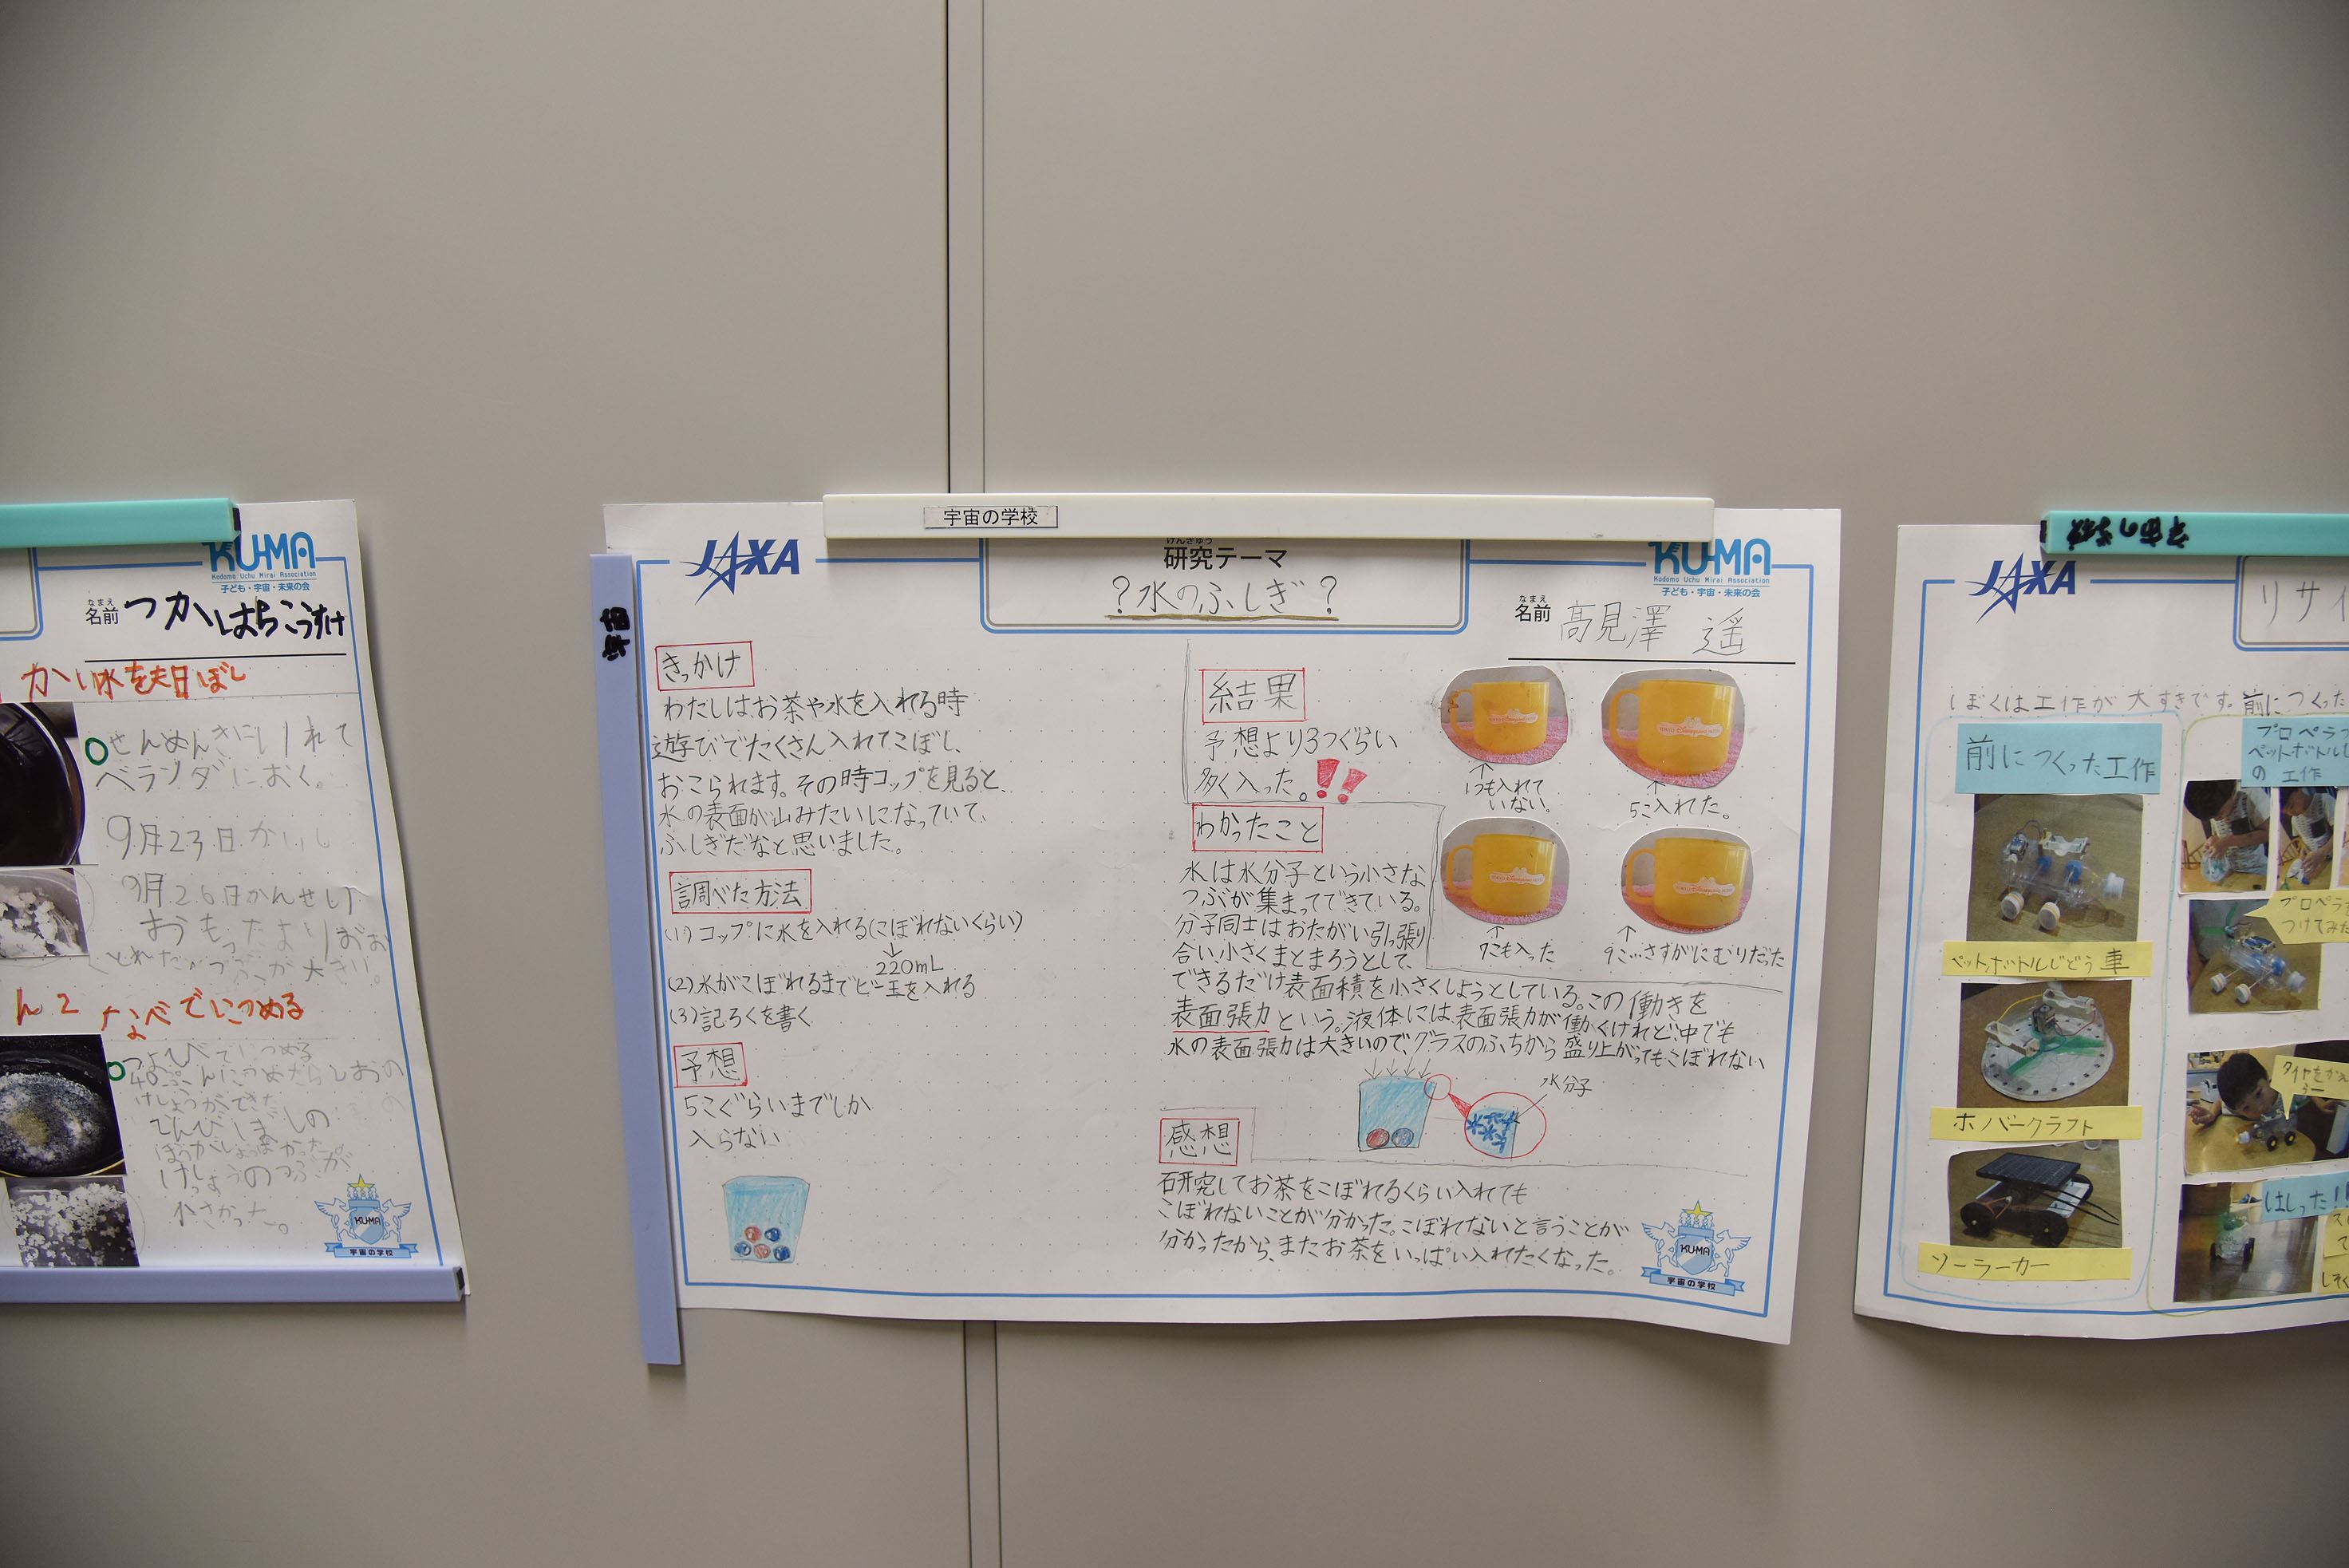 KU-MA
Kodomo Uchu Mirai Association
子ども・宇宙・未来の会
なまえ
名前 つかはらこうすけ
かい水を天日ぼし
せんめんきにいれて
ベランダにおく。
9月23日かいし
9月26日かんせい
おもったよりおお
とれた。つぶが大きい。
ん2 なべでにつめる
小さかった。
KU-MA
宇宙の学校
宇宙の学校
JAXA
けんきゅう
研究テーマ
?水のふしぎ?
KU-MA
Kodomo Uchu Mirai Association
子ども・宇宙・未来の会
なまえ
名前 髙見澤 遥
きっかけ
わたしはお茶や水を入れる時
遊びでたくさん入れてこぼし、
おこられます。その時コップを見ると、
水の表面が山みたいになっていて、
ふしぎだなと思いました。
調べた方法
(1)コップに水を入れる(こぼれないくらい)
↓
220mL
(2)水がこぼれるまでビー玉を入れる
(3)記ろくを書く
予想
5こぐらいまでしか
入らない
結果
予想より3つぐらい
多く入った。!!
1つも入れて
いない。
5こ入れた。
7こも入った
9こ…さすがにむりだった
わかったこと
水は水分子という小さな
つぶが集まってできている。
分子同士はおたがい引っ張り
合い、小さくまとまろうとして、
できるだけ表面積を小さくしようとしている。この働きを
表面張力という。液体には、表面張力が働くけれど、中でも
水の表面張力は大きいので、グラスのふちから盛り上がってもこぼれない
水分子
感想
研究してお茶をこぼれるくらい入れても
こぼれないことが分かった。こぼれないと言うことが
分かったから、またお茶をいっぱい入れたくなった。
KU-MA
宇宙の学校
JAXA
リサイ
ぼくは工作が大すきです。前につくった
前につくった工作
ペットボトルじどう車
ホバークラフト
ソーラーカー
プロペラ
ペットボトル
の工作
プロペラを
つけてみた
はしった!!